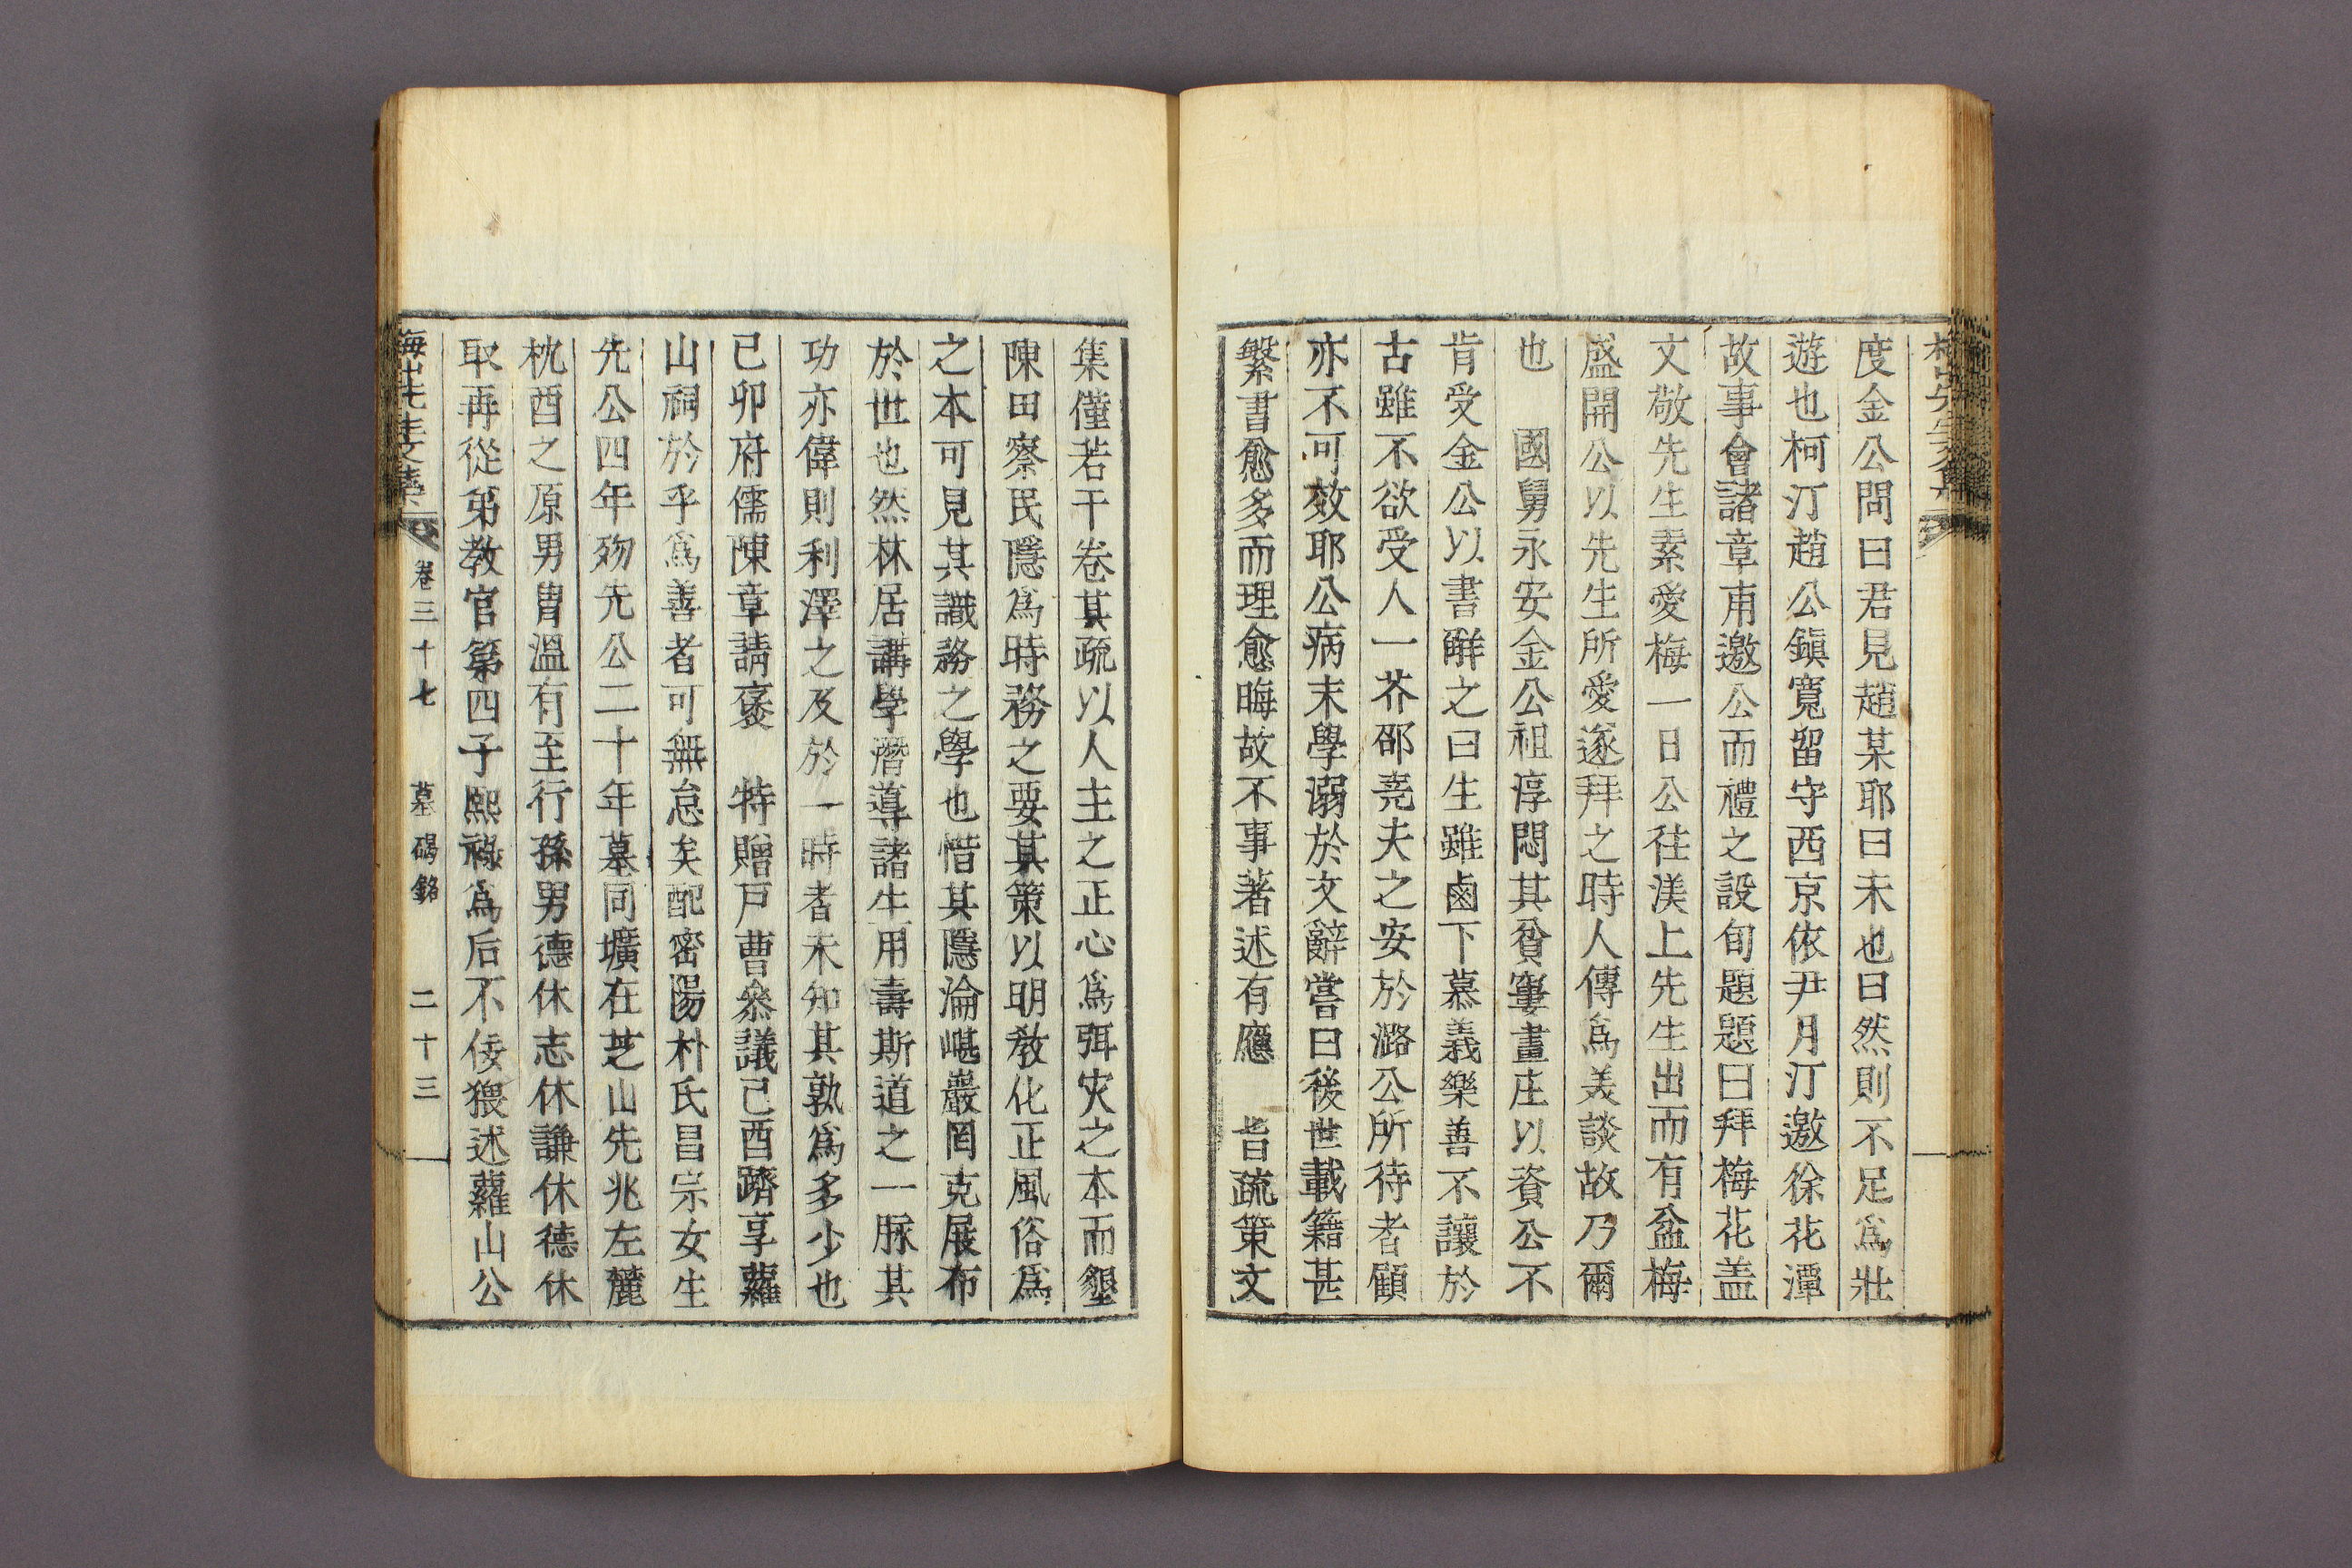 度金公問曰君見趙某耶曰未也曰然則不足爲壯
遊也柯汀趙公鎭寬留守西京依尹月汀邀徐花潭
故事會諸章甫邀公而禮之設旬題題曰拜梅花盖
文敬先生素愛梅一日公往渼上先生出而有盆梅
盛開公以先生所愛遂拜之時人傳爲美談故乃爾
也　國舅永安金公祖淳悶其貧窶畫庄以資公不
肯受金公以書觧之曰生雖鹵下慕義樂善不讓於
古雖不欲受人一芥邵堯夫之安於潞公所待者顧
亦不可效耶公病末學溺於文辭嘗曰後世載籍甚
繁書愈多而理愈晦故不事著述有應　旨疏策文
集僅若干卷其疏以人主之正心爲弭灾之本而墾
陳田察民隱爲時務之要其策以明教化正風俗爲
之本可見其識務之學也惜其隱淪嵁巖罔克展布
於世也然林居講學潛導諸生用壽斯道之一脉其
功亦偉則利澤之及於一時者未知其孰爲多少也
己卯府儒陳章請褒　特贈戶曹叅議己酉躋享蘿
山祠於乎爲善者可無怠矣配密陽朴氏昌宗女生
先公四年歿先公二十年墓同壙在芝山先兆左麓
枕酉之原男胄溫有至行孫男德休志休謙休德休
取再從第教官第四子熙祿爲后不佞猥述蘿山公
梅山先生文集
卷三十七　墓碣銘　二十三